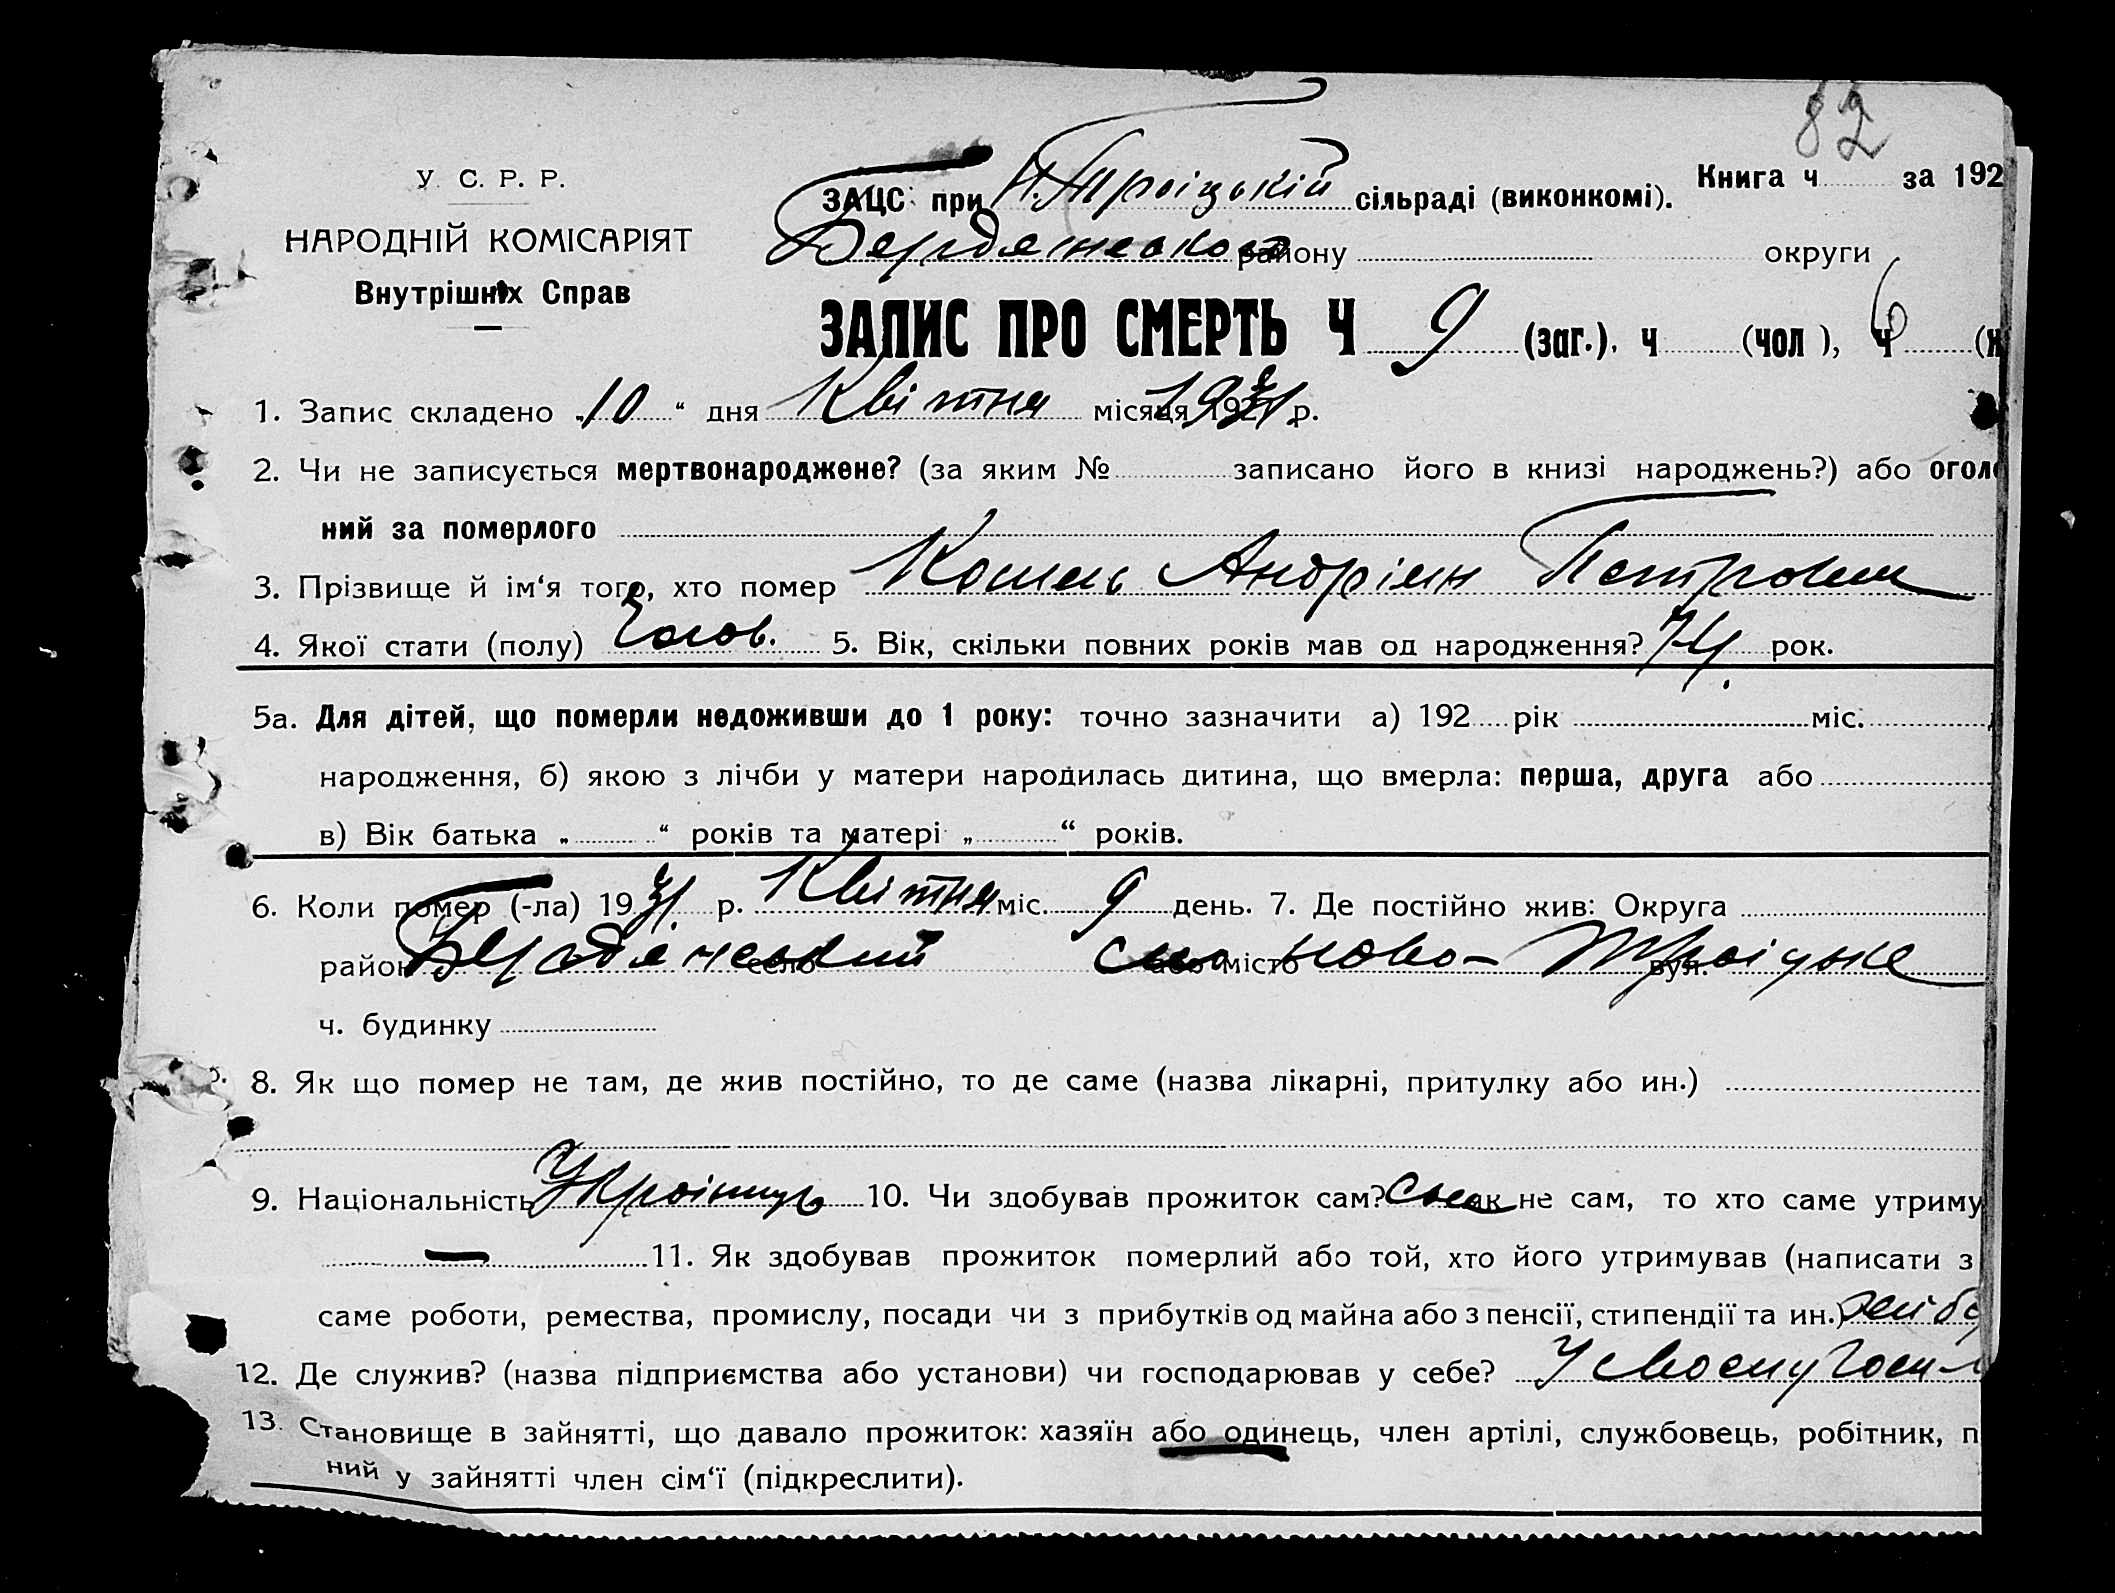 82
У. С. Р. Р.
НАРОДНІЙ КОМІСАРІЯТ
Внутрішніх Справ
ЗАЦС при Н.Троіцькій сільраді (виконкомі).
Книга ч за 192
Бердянського району округи
ЗАПИС ПРО СМЕРТЬ Ч 9 (заг.). ч (чол ), ч 6 (ж
1. Запис складено „10 “ дня Квітня місяця 1931 р.
2. Чи не записується мертвонароджене? (за яким № записано його в книзі народжень?) або оголо
ний за померлого
3. Прізвище й ім‘я того, хто помер Андріян Петрович
4. Якої стати (полу) Чолов. 5. Вік, скільки повних років мав од народження? 74 рок.
5а. Для дітей, що померли недоживши до 1 року: точно зазначити а) 192 рік міс.
народження, б) якою з лічби у матери народилась дитина, що вмерла: перша, друга або
в) Вік батька „ “ років та матері „ “ років.
6. Коли помер (-ла) 1931 р. Квітня міс. 9 день. 7. Де постійно жив: Округа
район Бердянський село або місто село Ново-Троіцьке вул.
ч. будинку
8. Як що помер не там, де жив постійно, то де саме (назва лікарні, притулку або ин.)
9. Національність Украінець 10. Чи здобував прожиток сам? Сам як не сам, то хто саме утриму
— 11. Як здобував прожиток померлий або той, хто його утримував (написати з
саме роботи, ремества, промислу, посади чи з прибутків од майна або з пенсії, стипендії та ин.)
12. Де служив? (назва підприємства або установи) чи господарював у себе? У своєму госп
13. Становище в зайнятті, що давало прожиток: хазяїн або одинець, член артілі, службовець, робітник, п
ний у зайнятті член сім‘ї (підкреслити).